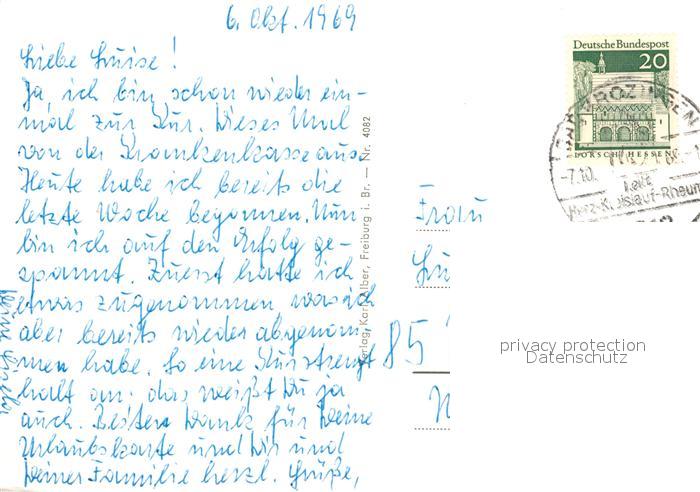 6. Okt. 1969
Liebe Luise!
Ja, ich bin schon wieder ein-
mal zur Kur. Dieses Mal
von der Krankenkasse aus.
Heute habe ich bereits die
letzte Woche begonnen. Nun
bin ich auf den Erfolg ge-
spannt. Zuerst hatte ich
etwas zugenommen, was ich
aber bereits wieder abgenom-
men habe. So eine Kur strengt
halt an, das weißt Du ja
auch. Besten Dank für Deine
Urlaubskarte und Dir und
Deiner Familie herzl. Grüße,
Verlag Karl Alber, Freiburg i. Br. — Nr. 4082
Deutsche Bundespost
20
LORSCH/HESSEN
-7.10.
Herz-Kreislauf-Rheuma
Frau
Lu
85
N
privacy protection
Datenschutz